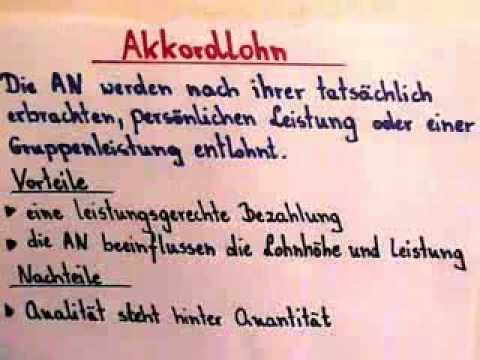 Akkordlohn
Die AN werden nach ihrer tatsächlich
erbrachten, persönlichen Leistung oder einer
Gruppenleistung entlohnt.
Vorteile
▸ eine leistungsgerechte Bezahlung
▸ die AN beeinflussen die Lohnhöhe und Leistung
Nachteile
▸ Qualität steht hinter Quantität